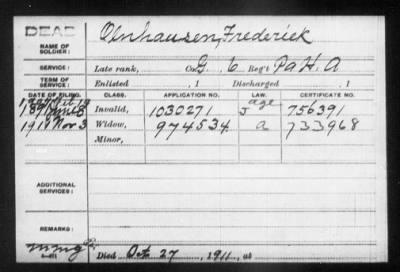 DEAD
Ohnhausen, Frederick
NAME OF SOLDIER:
SERVICE: Late rank, Co. G, 6 Reg't Pa H. A
TERM OF SERVICE: Enlisted , 1 Discharged , 1
DATE OF FILING. CLASS. APPLICATION NO. LAW. CERTIFICATE NO.
age
Invalid, 1030271 J 756391
1911 Nov 3 Widow, 974534 a 733968
Minor,
ADDITIONAL SERVICES:
REMARKS:
Died Oct 27, 1911, at